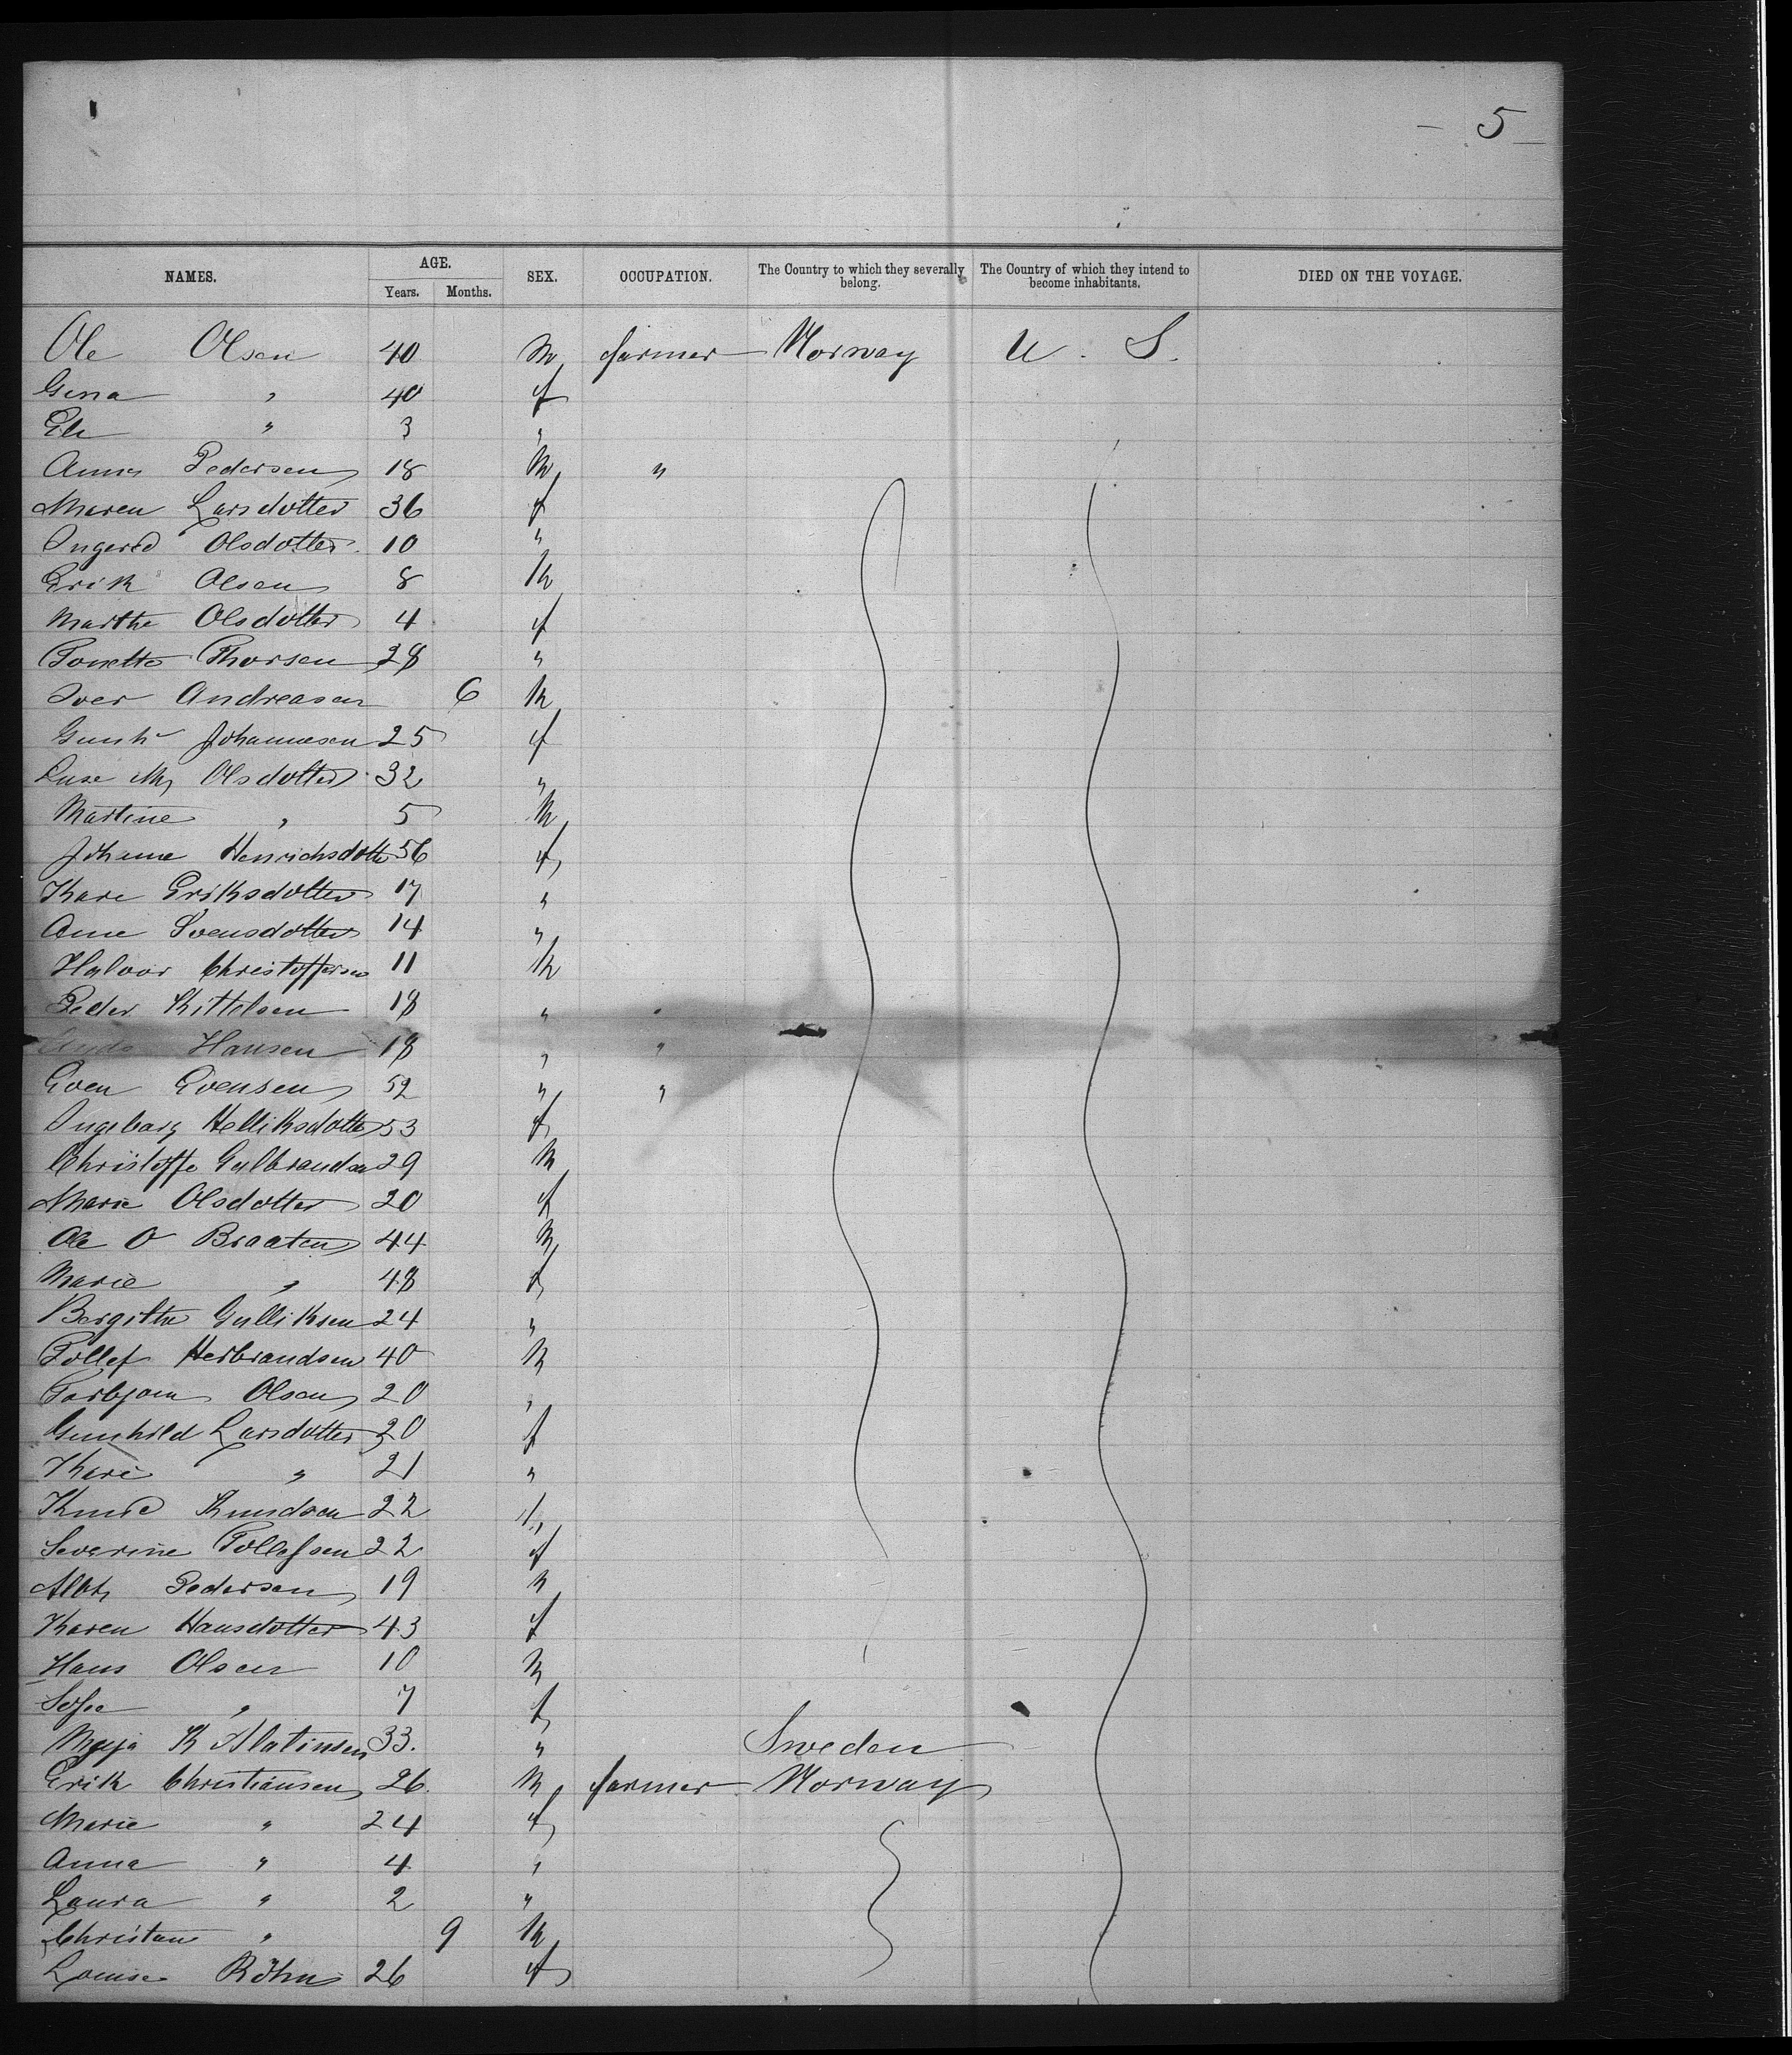 - 5 -
NAMES. AGE. SEX. OCCUPATION. The Country to which they severally belong. The Country of which they intend to become inhabitants. DIED ON THE VOYAGE.
Years. Months.
Ole Olsen 40 M farmer Norway U. S.
Gina " 40 f
Eli " 3 "
Pedersen 18 M "
Maren Larsdotter 36 f
Ingered Olsdotter 10 "
Erik Olsen 8 M
Marthe Olsdotter 4 f
Tonette Thorsen 28 "
Iver Andreasen 6 M
Johannesen 25 f
Olsdotter 32 "
Martine " 5 M
Johanne Henrichsdotter 56 f
Kari Eriksdotter 17 "
Anne Svensdotter 14 "
Halvor Christoffersen 11 M
Peder Kittelsen 18 " "
Hansen 18 " "
Even Evensen 52 " "
Ingeborg Helliksdotter 53 f
Christoffe Gulbrandsen 29 M
Marie Olsdotter 20 f
Ole O Braaten 44 M
Marie " 48 f
Bergithe Gulliksen 24 "
Tollef Herbrandsen 40 M
Torbjorn Olsen 20 "
Gunhild Larsdotter 20 f
Kari " 21 "
Knud Knudsen 22 M
Severine Tollefsen 22 f
Pedersen 19 M
Karen Hansdotter 43 f
Hans Olsen 10 M
Sofie " 7 f
Maja K 33. " Sweden
Erik Christiansen 26 M farmer Norway
Marie " 24 f
Anna " 4 "
Laura " 2 "
Christian " 9 M
Louise Röhn 26 f